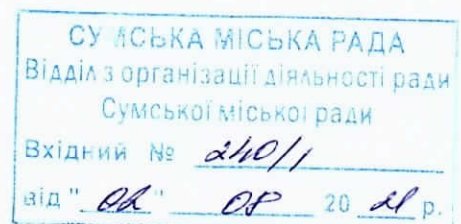 СУМСЬКА МІСЬКА РАДА
Відділ з організації діяльності ради
Сумської міської ради
Вхідний № 240/1
від "02" 08 2021 р.